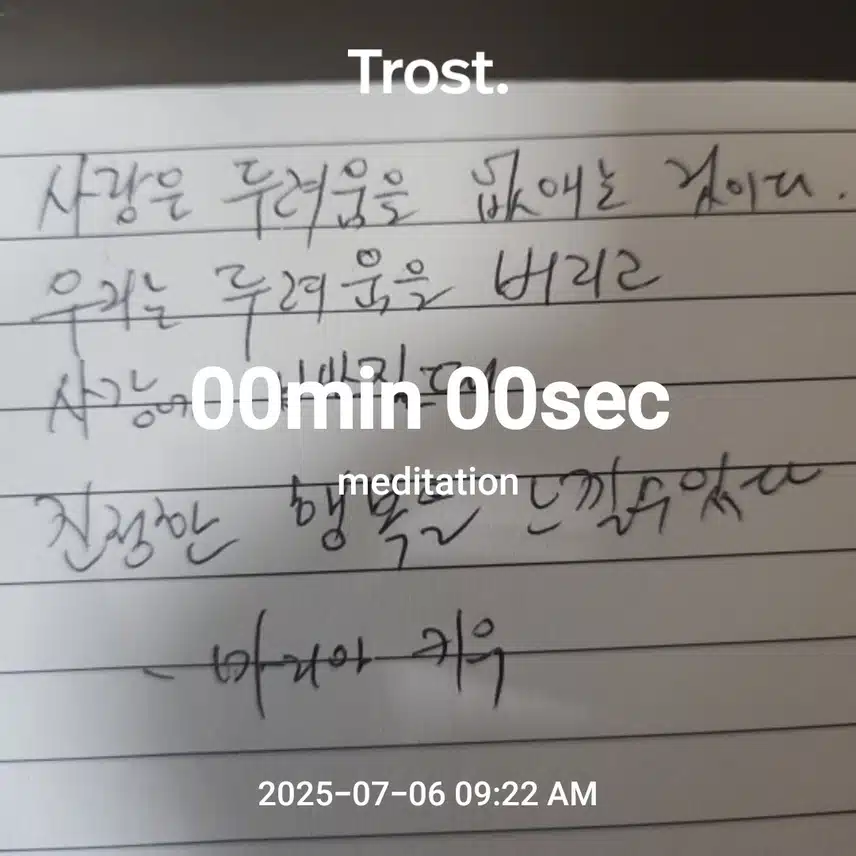 Trost.
사랑은 두려움을 없애는 것이다.
우리는 두려움을 버리고
사랑에
00min 00sec
meditation
진정한 행복을 느낄수있다
- 마리아
2025-07-06 09:22 AM